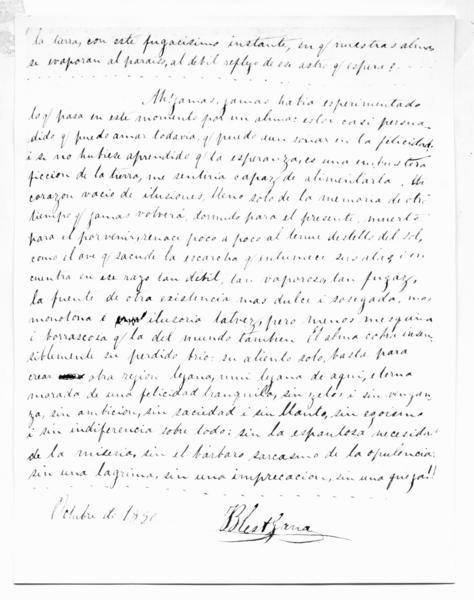 la tierra, con este fugacisimo instante, en q nuestras almas
se evaporan al paraiso, al debil reflejo de ese astro q espira?
Ah! jamas, jamas habia esperimentado
lo q pasa en este momento por mi alma: estoi casi persua-
dido q puedo amar todavia, q puedo aun soñar en la felicidad,
i si no hubiese aprendido q la esperanza, es una embustera
ficcion de la tierra, me sentiria capaz de alimentarla. Mi
corazon vacio de ilusiones, lleno solo de la memoria de otro
tiempo q jamas volverá, dormido para el presente, muerto
para el porvenir, renace poco a poco al tenue destello del sol,
como el ave q sacude la escarcha q entumece sus alas; i en
cuentra en ese rayo tan debil, tan vaporoso, tan fugaz,
la fuente de otra existencia mas dulce i sosegada, mas
monotona e ilusoria talvez, pero menos mesquina
i borrascosa q la del mundo tambien. El alma cobra insen-
siblemente su perdido brio: su aliento solo, basta para
crear otra rejion lejana, mui lejana de aqui, eterna
morada de una felicidad tranquila, sin zelos i sin vengan-
za, sin ambicion, sin saciedad i sin llanto, sin egoismo
i sin indiferencia sobre todo; sin la espantosa necesidad
de la miseria, sin el bárbaro sarcasmo de la opulencia;
sin una lagrima, sin una imprecacion, sin una queja!!
Octubre de 1850
Blest Gana